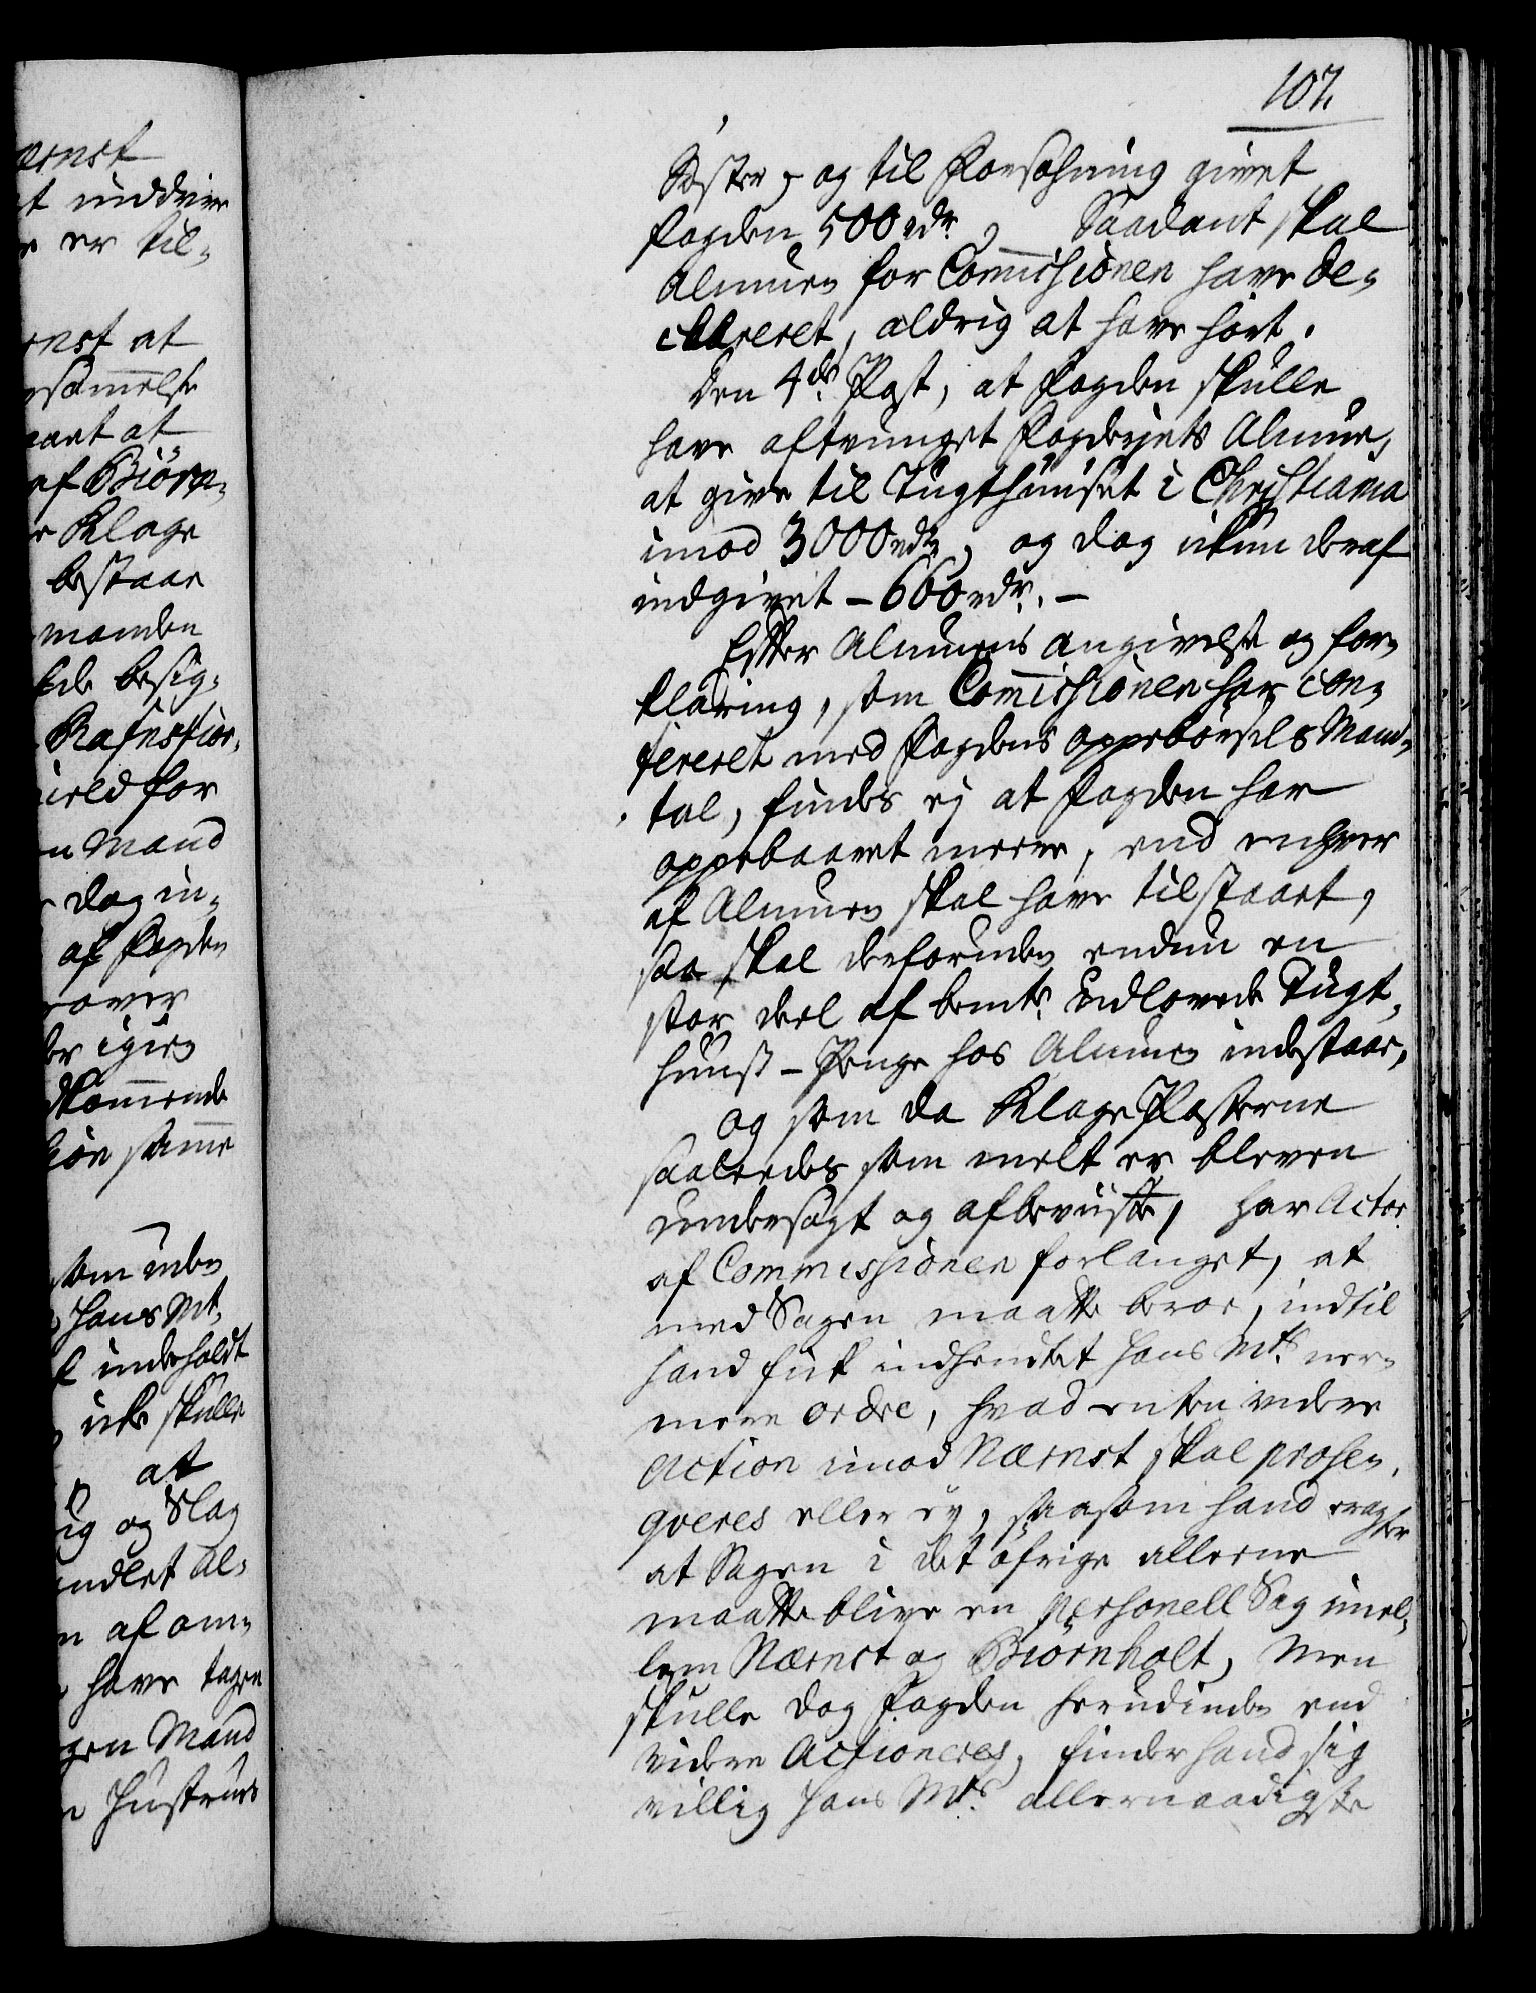 107.
Søster, og til Forsohning givet
Fogden 500 rdr, Saadant skal
Almuen for Commissionen have de-
clareret, aldrig at have hørt.
Den 4de Post, at Fogden skulle
have aftvunget Fogderjets Almue,
at give til Tugthuuset i Christiania
imod 3000 rdr, og dog ikun deraf
indgivet – 660 rdr. –
Efter Almuens angivelse og for-
klaring, som Commissionen har con-
fereret med Fogdens oppebørsels Mand-
tal, findes ej at Fogden har
oppebaaret meere, end enhver
af Almuen skal have tilstaaet,
saa skal desforuden endnu en
stor deel af bemte udlovede Tugt-
huuss-Penge hos Almuen indestaae,
og som da Klage Posterne
saaledes som melt er bleven
undersøgt og afbeviiste, har Actor
af Commissionen forlanget, at
med Sagen maatte beroe, indtil
hand fik indhendtet Hans Mts. ner-
mere ordre, hvad enten videre
action imod Nærnst skal prose-
qveres eller ey, saasom hand eragter
at Sagen i det øfrige alleene
maatte blive en personell Sag imel-
lem Nærnst og Biørnholt, Men
skulle dog Fogden herudinden end
videre Actioneres, finder hand sig
villig Hans Mts. allernaadigste
ærnst
t inddrive
er til-
rnst at
samelse
aaet at
af Biörn-
Klage
bestaar
manden
besig-
Rafnsfior-
for
n Mand
dog in-
af Fogden
over
igien
kommende
ion samme
som inden
Hans Mt.
indeholdt
icke skulle
at
ig og Slag
andlet Al-
n af om-
have tagen
gen Mand
Hustrues